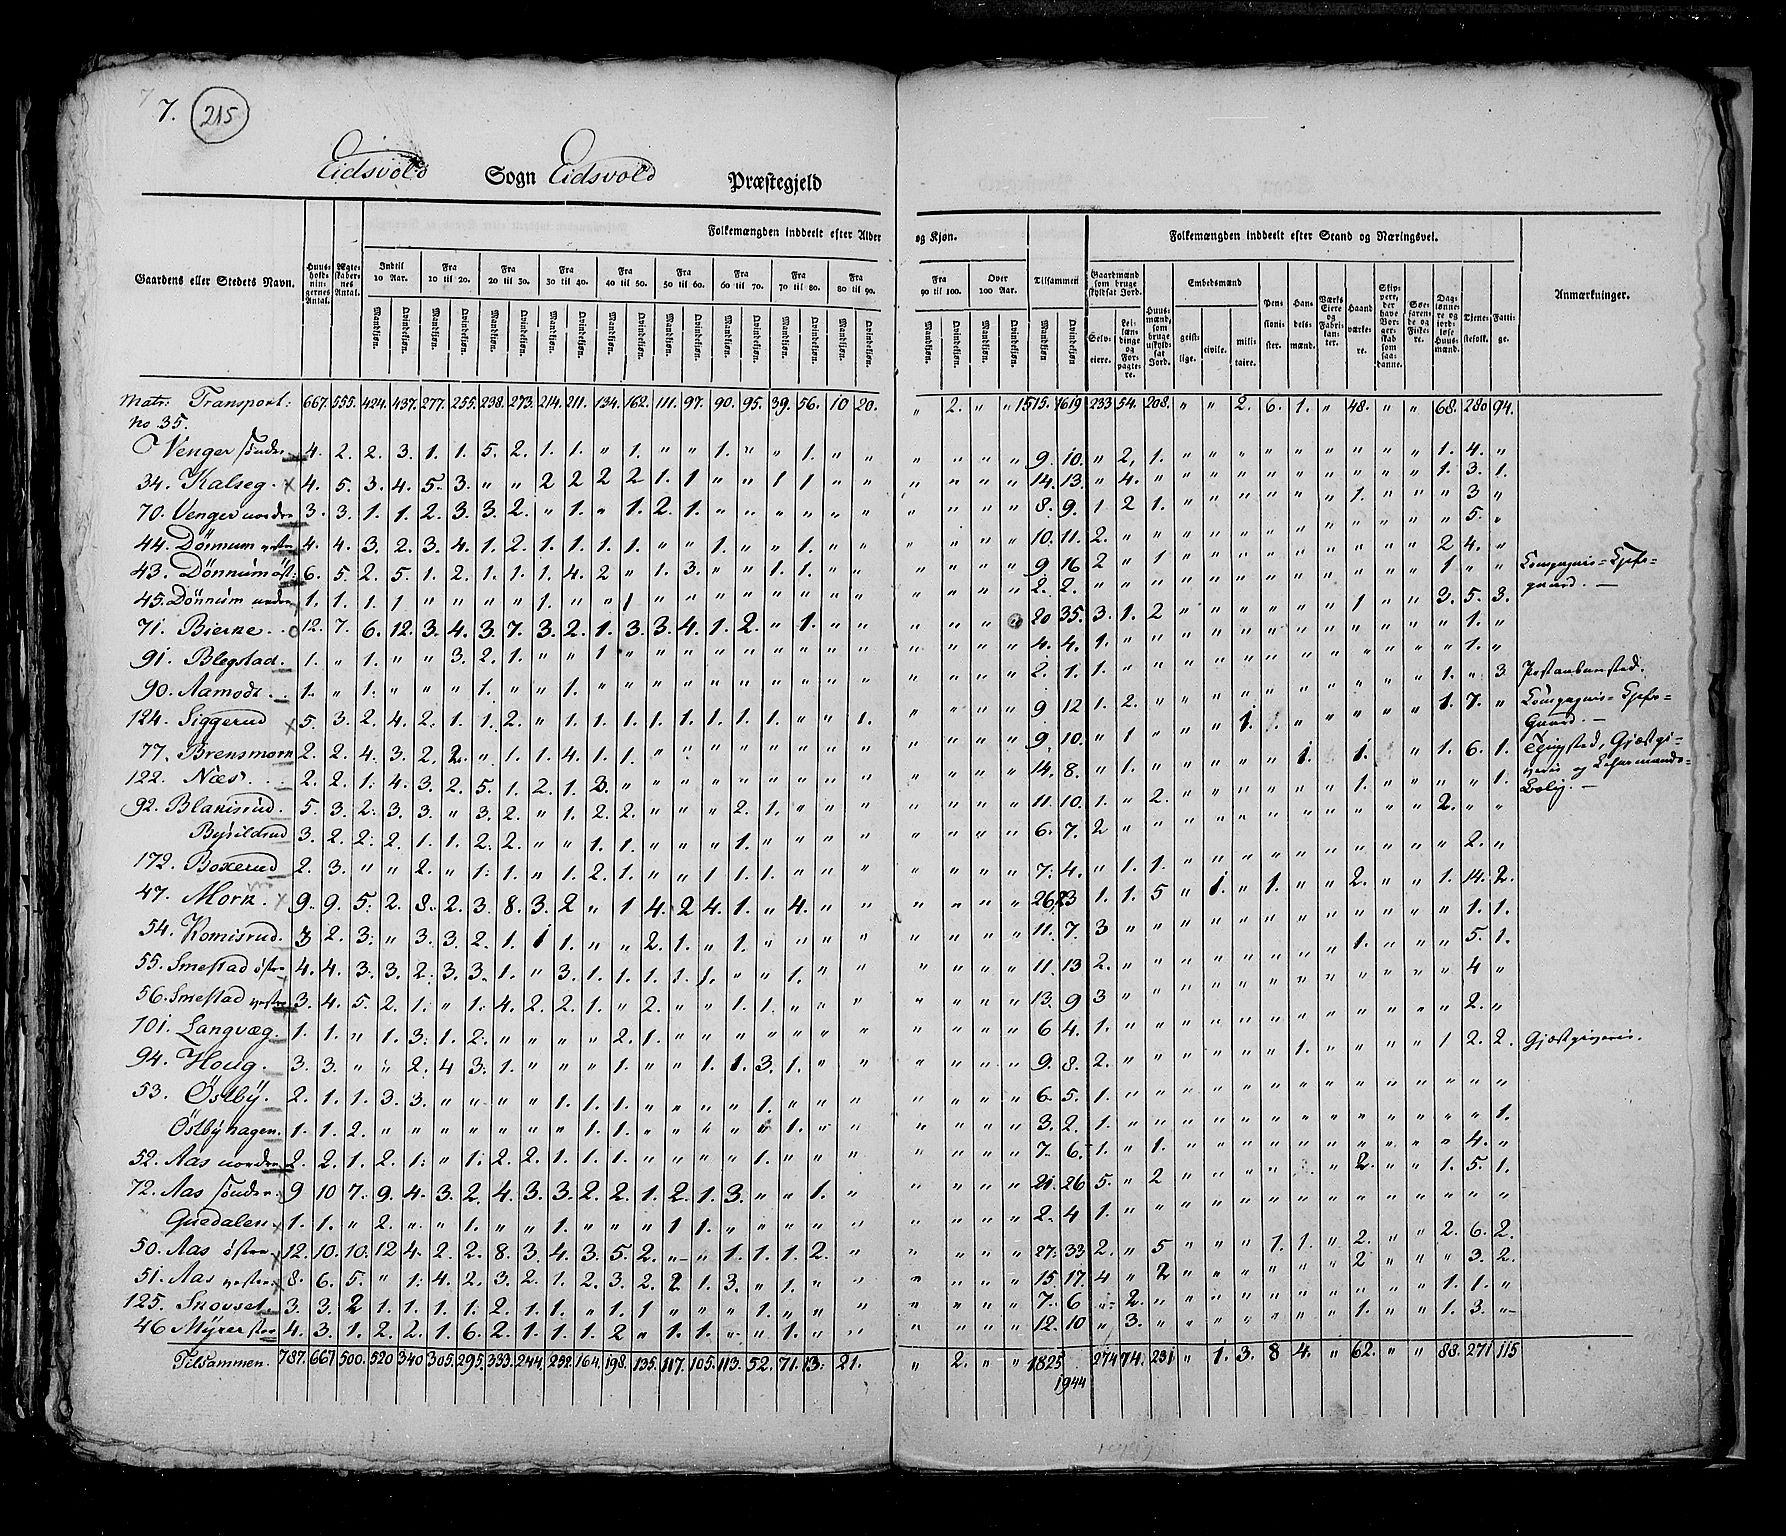 7. 215
Eidsvold Sogn Eidsvold Præstegjeld
Folkemængden inddeelt efter Alder og Kjøn. Folkemængden inddeelt efter Stand og Næringsvei.
Gaardens eller Stedets Navn. Huus-hold-nin-gernes Antal. Ægte-skaber-nes Antal. Indtil 10 Aar. Fra 10 til 20. Fra 20 til 30. Fra 30 til 40. Fra 40 til 50. Fra 50 til 60. Fra 60 til 70. Fra 70 til 80. Fra 80 til 90. Fra 90 til 100. Over 100 Aar. Tilsammen Gaardmænd som bruge skyldsat Jord. Embedsmænd Anmærkninger.
Mandkjøn. Qvindekjøn. Mandkjøn. Qvindekjøn. Mandkjøn. Qvindekjøn. Mandkjøn. Qvindekjøn. Mandkjøn. Qvindekjøn. Mandkjøn. Qvindekjøn. Mandkjøn. Qvindekjøn. Mandkjøn. Qvindekjøn. Mandkjøn. Qvindekjøn. Mandkjøn. Qvindekjøn. Mandkjøn. Qvindekjøn. Mandkjøn Qvindekjøn Selv-eiere. Lei-læn-dinge og For-pagte-re. Huus-mænd, som bruge uskyld-sat Jord. geist-lige. civile. mili-taire. Pen-sioni-ster. Han-dels-mænd. Værks Eiere og Fabri-kan-ter. Haand værke-re. Skip-pere, der have Bor-ger-skab som saa-danne. Søe-farende og Fiske-re. Dag-lønne-re og jord-løse Huus-mænd. Tjene-stefolk. Fatti-ge.
Matr: Transport: 667. 555. 424. 437. 277. 255. 238. 273. 214. 211. 134. 162. 111. 97. 90. 95. 39. 56. 10 20. " 2. " " 1515. 1619 233 54. 208. " " 2. 6. 1. " 48. " " 68. 280 94.
No 35.
Venger søndre 4. 2. 2. 3. 1. 1. 5. 2. 1. 1. " 1. " " 1. " " 1. " " " " " " 9. 10. " 2, 1. " " " " " " " " " 1. 4. "
34. Kalseg. 4. 5. 3. 4. 5. 3. " " 2 2 2 2 1. 1 " " 1 1 " " " " " " 14. 13. " 4. " " " " " " " " " " 1. 3. 1.
70. Venger nordre 3. 3. 1. 1. 2. 3. 3. 2. " 1. " 1. 2. 1. " " " " " " " " " " 8. 9. 1 2 1. " " " " " " 1. " " " 3 "
44. Dönnum vestre 4. 4. 3. 2. 3. 4. 1. 2. 1. 1. 1. 1. " " 1. " " 1. " " " " " " 10. 11. 2. " " " " " " " " " " " " 5. "
43. Dönnum öst: 6. 5. 2. 5. 1. 2. 1. 1. 1. 4. 2 " 1. 3. " " 1. 1. " " " " " " 9 16 2 " 1 " " " " " " " " " 2 4. " Compagnie-Chefs-
45. Dönnum nedre 1. 1. 1. 1 " " " " 1. " " 1 " " " " " " " " " " " " 2. 2. " " " " " " " " " " " " 1 " " gaard. —
71. Bierne 12. 7. 6. 12. 3. 4. 3. 7. 3. 2. 1. 3. 3. 4. 1. 2. " 1. " " " " " 20 35. 3. 1. 2 " " " " " " 1 " " 3. 5. 3.
91. Blegstad. 1. " 1. " " 3. 2. 1. " " 1 " " " " " " " " " " " " " 4. 4. 1. " " " " " " " " " " " " 1. "
90. Aamodt. 1. " 1. " " " 1. " " 1. " " " " " " " " " " " " " " 2. 1. 1. " " " " " " " " " " " " 1. "
124. Siggerud 5. 3. 2. 4. 2. 1. 1. 2. " 1. 1. 1. 1. 1. 1. 1. 1. " " 1. " " " " 9 12 1. 2. " " " " " " " " " " 1. " 3 Postaabnersted.
77. Brensmorn 2. 2. 4. 3. 2. 2. " 1. 1. 4. 1. 1. " " " " " " " " " " " " 9. 10. " 1 " " " 1. " " " " " " 1. 7. " Compagnie-Chefs-
122. Næs. 2. 2. 1. 4. 3. 2. 5. 1. 2. 1. 3. " " " " " " " " " " " " " 14. 8. " 1. " " " " " 1. " 1. " " 1. 6. 1. Gaard. —
92. Blanisrud. 5. 3. 2. 3. 3. " 3. 2. " 1. 2. 2. " " " 2. 1. " " " " " " " 11. 10. 1. " 2. " " " " " " 1. " " " " 1. Thingsted, Gjæstgi-
Byrildsrud 3. 2. 2. 2. 1. 1. 2. 2. " " 1. 1. " " " 1. " " " " " " " " 6. 7. 2 " " " " " " " " " " " 2. " " verie og Lehnsmands-
172. Boxerud 2. 3. " " 2. " 1. 1. " 1. 2. 1. " " 1 1. 1. " " " " " " " 7. 4. " 1. 1. " " " " " " " " " " 2. " Bolig. —
47. Morn. 9. 9. 5. 2. 8. 2. 3. 8. 3. 2 " 1 4. 2 4. 1. " 4. " " " " " " 26 23 1. 1. 5 " 1. " 1. " " 2. " " 1. 14. 2.
54. Komisrud. 3 2. 3. " 3. 3. 2. 1. 1 1. " " 2. 1. " 1. " " " " " " " " 11. 7. 3 " " " " " " " " " " " " 1. 1.
55. Smestad östre 4. 4. 3. 3. 2. 3. 3. 1. " 3. 1. 1. 1. 1. 1. " " 1. " " " " " " 11. 13 2. " " " " " " " " 1. " " " 5. 1.
56. Smestad vestre 3. 4. 5. 2. 1. " 1. 4. 2. 2. 1. " 2. " " 1. 1. " " " " " " " 13. 9 3 " " " " " " " " " " " " 4 "
101. Langvæg. 1. 1. " 1. 3. 1. 2. " " " " 2. 1. " " " " " " " " " " " 6 4. 1. " " " " " " " " " " " " 2. "
94. Houg. 3. 3. " " 2. 4 3. 1. " " " 1. " " 1. 1. 3. 1. " " " " " " 9. 8. 2. " " " " " " 1. " " " " 1 2. 2. Gjæstgiverie.
53. Östby. 2. 1. 1. 3. 3. " " " " 1. 1. 1. " " " " 1. " " " " " " " 6. 5. 1. " " " " " " " " " " " " " "
Östbyhagen. 1. 1. 2. " " " " " " " 1. 1. " " " " " 1. " " " " " " 3. 2. 1. " " " " " " " " " " " " " 1.
52. Aas nordre 2. 2. 1. 2. 1. " 1. 2. 2. 1. 1. 1. " " " " 1. " " " " " " " 7. 6. 1. " 1. " " " " " " " " " " 4. "
72. Aas söndre 9 10 7. 9. 4. 3. 2. 4. 3. 3. 2. 2. 1. 2. 1. 3. " " 1. " " " " " 21. 26 5. " 2 " " " " " " 2. " " 1. 5. 1.
Guedalen 1. 1. " 2. " " 1. " " 1. " " " 1 1. " " " " " " " " " 2. 4 1. " " " " " " " " " " " " " "
50. Aas östre 12. 10. 10. 12 4. 2. 2. 8. 3. 4. 3. 5. 2. " " 1. 1. 1. 2. " " " " " 27. 33 2. " 5 " " " 1. 1. " 2. " " 2. 6. 2.
51. Aas vestre 8. 6. 5. " 1. 4. 2. 3. 2. 1. 2. 3. 2. 2 1. 3. " 1. " " " " " " 15. 17. 4 " 2 " " " " " " 2 " " " 3. 2.
125. Snovset. 3. 3. 2 1. 1. 1. 1. 2. 1. 1. " 1. 1 " " " 1. " " " " " " " 7. 6 " 2. " " " " " " " " " " 1. 1. "
46 Myrer 4. 3. 1. 2. 2. 1. 6. 2. 1. 1. 1. 2 " 1. 1. " " 1. " " " " " " 12. 10 " 3. " " " " " " " 1. " " 1. 3. "
Tilsammen. 787. 667 500. 520 340 305. 295. 333. 244. 232. 164. 198. 135. 117. 105. 113. 52. 71. 13. 21. " 2. " " 1825 1944 274 74. 231 " 1. 3. 8 4. " 62. " " 88. 271 115